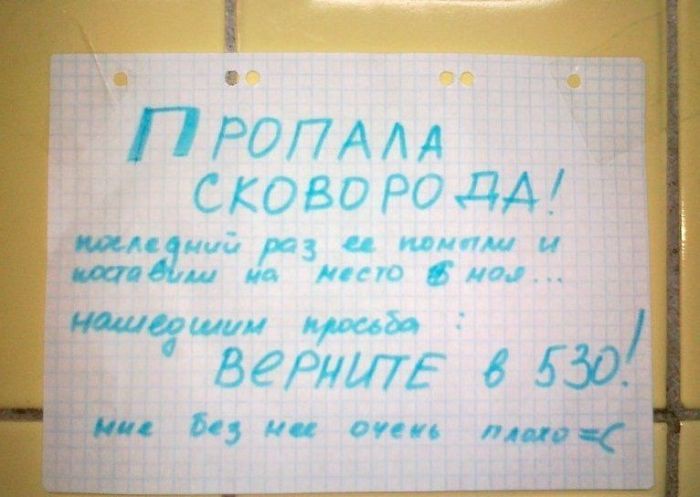 ПРОПАЛА
СКОВОРОДА!
последний раз ее помыли и
поставили на место 6 мая...
нашедшим просьба:
ВЕРНИТЕ в 530!
мне без нее очень плохо =(